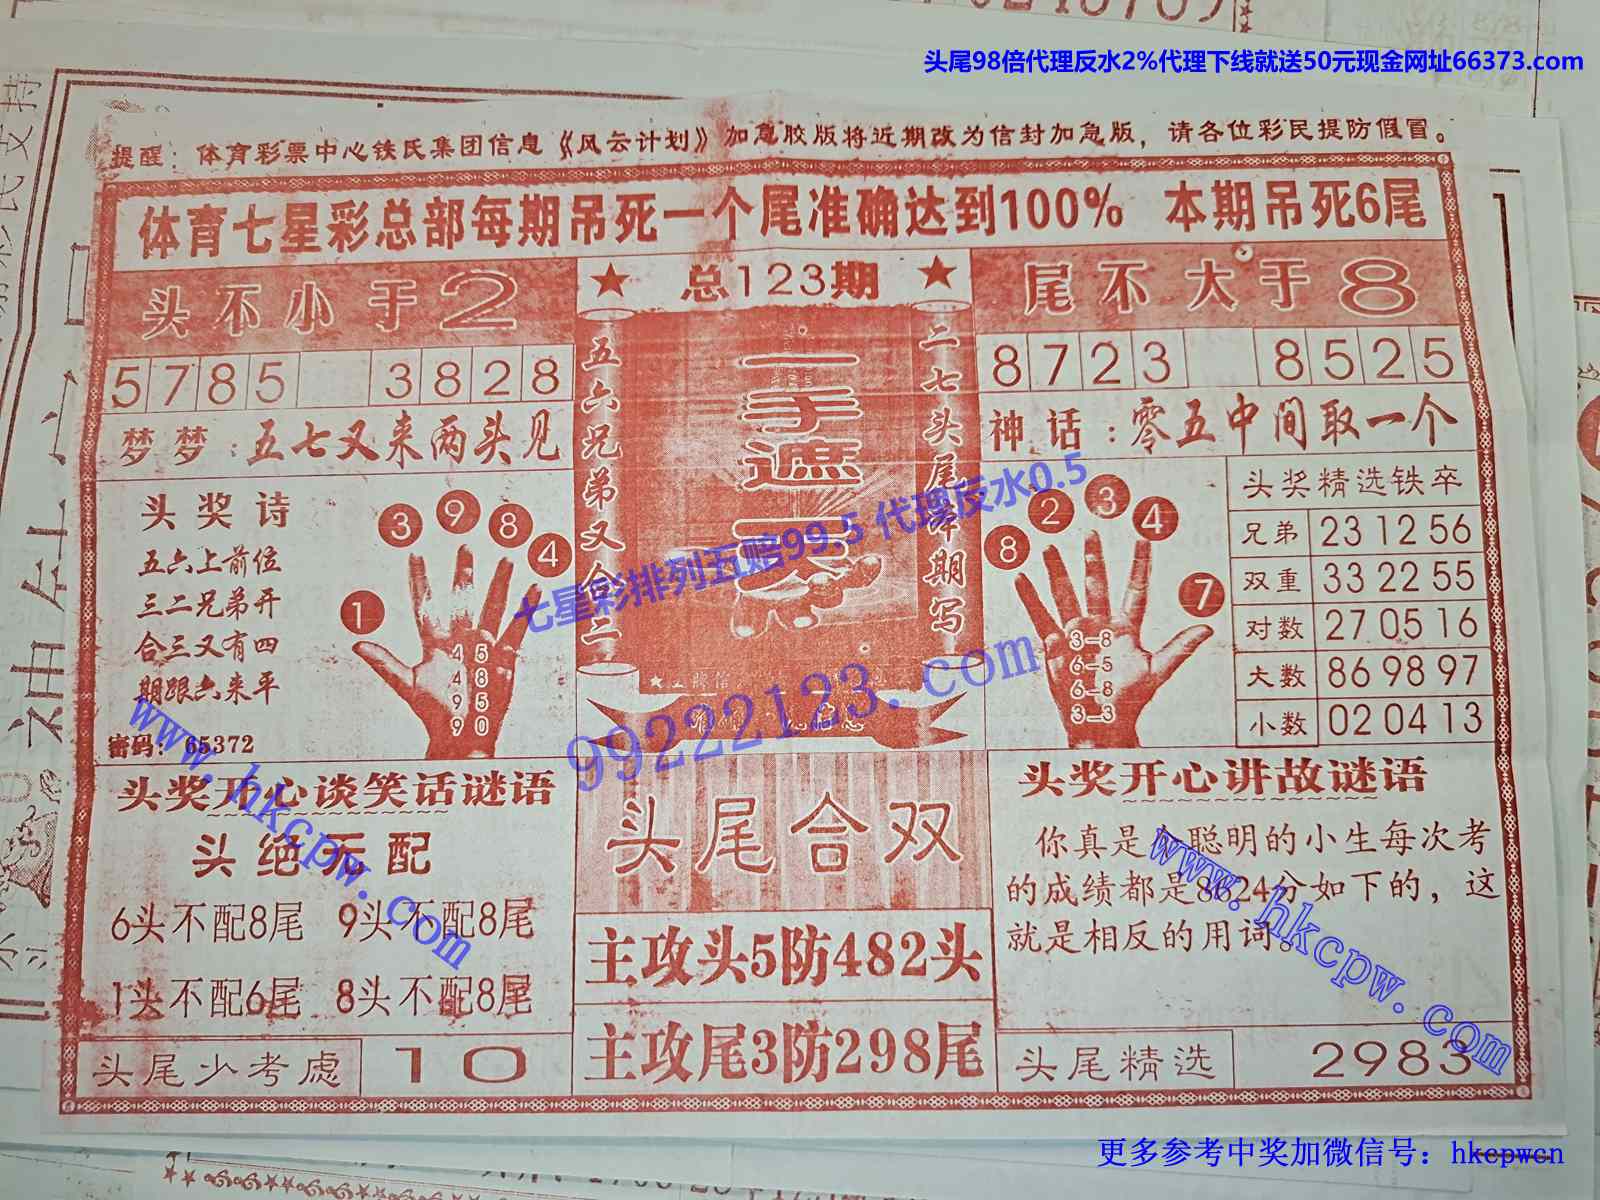 头尾98倍代理反水2%代理下线就送50元现金网址66373.com
提醒：体育彩票中心铁氏集团信息《风云计划》加急胶版将近期改为信封加急版，请各位彩民提防假冒。
体育七星彩总部每期吊死一个尾准确达到100% 本期吊死6尾
头不小于2
★ 总123期 ★
尾不大于8
5785 3828
8723 8525
梦梦：五七又来两头见
神话：零五中间取一个
五六兄弟又合二
一手遮天
二七头尾 期写
头奖诗
五六上前位
三二兄弟开
合三又有四
期跟六来平
密码：65372
1 3 9 8 4
45
48
95
90
8 2 3 4 7
3-8
6-5
6-8
3-3
头奖精选铁卒
兄弟 23 12 56
双重 33 22 55
对数 27 05 16
大数 86 98 97
小数 02 04 13
七星彩排列五赔99.5 代理反水0.5
99222123.com
www.hkcpw.com
www.hkcpw.com
头奖开心谈笑话谜语
头绝无配
6头不配8尾 9头不配8尾
1头不配6尾 8头不配8尾
头尾少考虑 10
头尾合双
主攻头5防482头
主攻尾3防298尾
头奖开心讲故谜语
你真是 聪明的小生每次考
的成绩都是8624分如下的，这
就是相反的用词。
头尾精选 2983
更多参考中奖加微信号：hkcpwcn